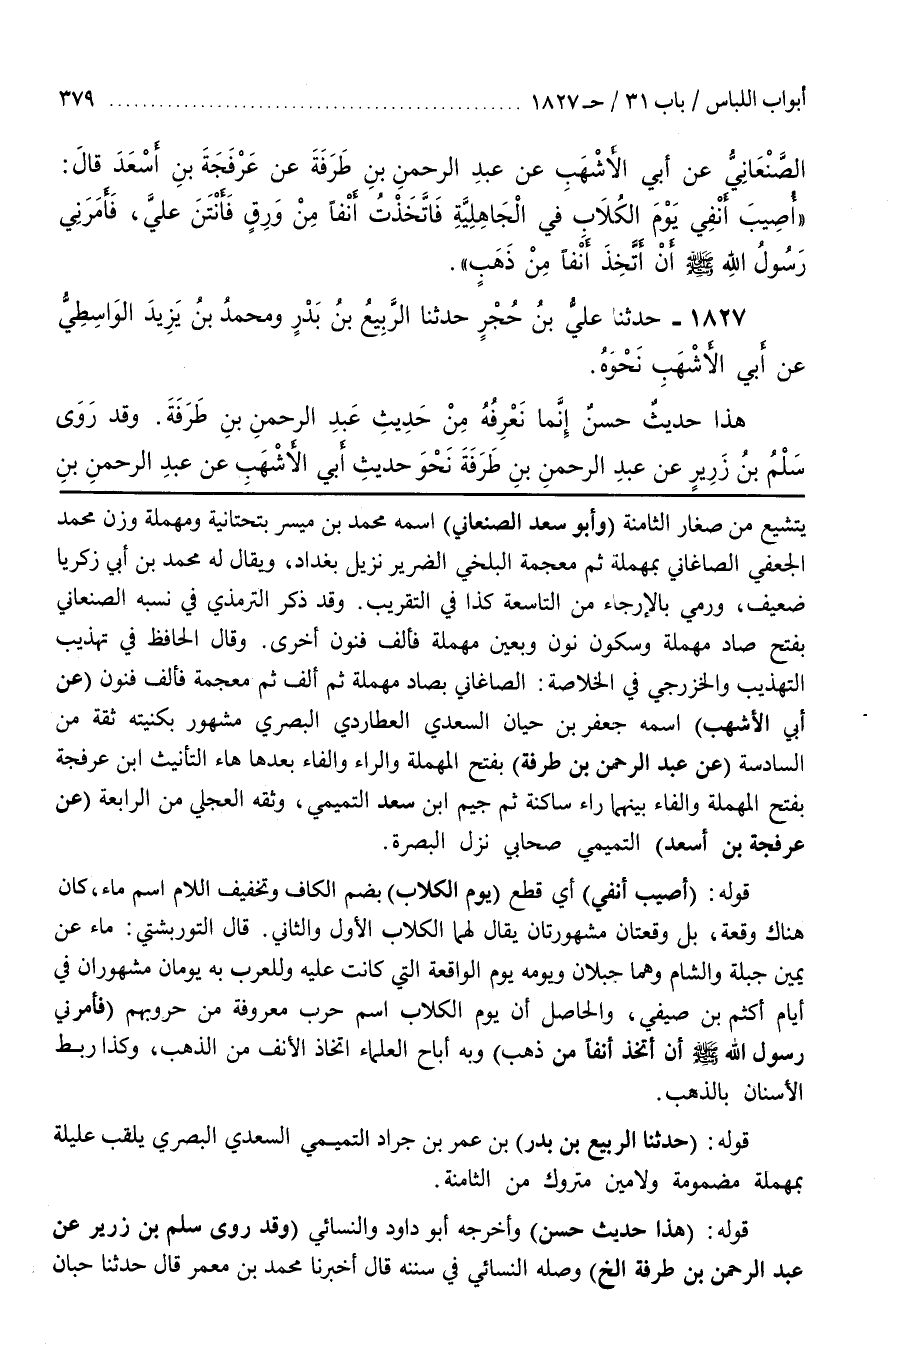 أبواب اللباس / باب ٣١ / حـ ١٨٢٧ ............................................... ٣٧٩
الصَّنْعَانِيُّ عن أبي الأَشْهَبِ عن عبدِ الرحمنِ بنِ طَرَفَةَ عن عَرْفَجَةَ بنِ أَسْعَدَ قالَ:
«أُصِيبَ أَنْفِي يَوْمَ الكُلَابِ في الْجَاهِلِيَّةِ فَاتَّخَذْتُ أَنْفاً مِنْ وَرِقٍ فَأَنْتَنَ عليَّ، فَأَمَرَنِي
رَسُولُ اللهِ ﷺ أَنْ أَتَّخِذَ أَنْفاً مِنْ ذَهَبٍ».
١٨٢٧ ـ حدثنا عليُّ بنُ حُجْرٍ حدثنا الرَّبِيعُ بنُ بَدْرٍ ومحمدُ بنُ يَزِيدَ الوَاسِطِيُّ
عن أَبي الأَشْهَبِ نَحْوَهُ.
هذا حديثٌ حسنٌ إِنَّما نَعْرِفُهُ مِنْ حَدِيثِ عَبدِ الرحمنِ بنِ طَرَفَةَ. وقد رَوَى
سَلْمُ بنُ زَرِيرٍ عن عبدِ الرحمنِ بنِ طَرَفَةَ نَحْوَ حديثِ أَبي الأَشْهَبِ عن عبدِ الرحمنِ بنِ
يتشيع من صغار الثامنة (وأبو سعد الصنعاني) اسمه محمد بن ميسر بتحتانية ومهملة وزن محمد
الجعفي الصاغاني بمهملة ثم معجمة البلخي الضرير نزيل بغداد، ويقال له محمد بن أبي زكريا
ضعيف، ورمي بالإرجاء من التاسعة كذا في التقريب. وقد ذكر الترمذي في نسبه الصنعاني
بفتح صاد مهملة وسكون نون وبعين مهملة فألف فنون أخرى. وقال الحافظ في تهذيب
التهذيب والخزرجي في الخلاصة: الصاغاني بصاد مهملة ثم ألف ثم معجمة فألف فنون (عن
أبي الأشهب) اسمه جعفر بن حيان السعدي العطاردي البصري مشهور بكنيته ثقة من
السادسة (عن عبد الرحمن بن طرفة) بفتح المهملة والراء والفاء بعدها هاء التأنيث ابن عرفجة
بفتح المهملة والفاء بينهما راء ساكنة ثم جيم ابن سعد التميمي، وثقه العجلي من الرابعة (عن
عرفجة بن أسعد) التميمي صحابي نزل البصرة.
قوله: (أصيب أنفي) أي قطع (يوم الكلاب) بضم الكاف وتخفيف اللام اسم ماء، كان
هناك وقعة، بل وقعتان مشهورتان يقال لهما الكلاب الأول والثاني. قال التوربشتي: ماء عن
يمين جبلة والشام وهما جبلان ويومه يوم الواقعة التي كانت عليه وللعرب به يومان مشهوران في
أيام أكثم بن صيفي، والحاصل أن يوم الكلاب اسم حرب معروفة من حروبهم (فأمرني
رسول الله ﷺ أن أتخذ أنفاً من ذهب) وبه أباح العلماء اتخاذ الأنف من الذهب، وكذا ربط
الأسنان بالذهب.
قوله: (حدثنا الربيع بن بدر) بن عمر بن جراد التميمي السعدي البصري يلقب عليلة
بمهملة مضمومة ولامين متروك من الثامنة.
قوله: (هذا حديث حسن) وأخرجه أبو داود والنسائي (وقد روى سلم بن زرير عن
عبد الرحمن بن طرفة الخ) وصله النسائي في سننه قال أخبرنا محمد بن معمر قال حدثنا حبان